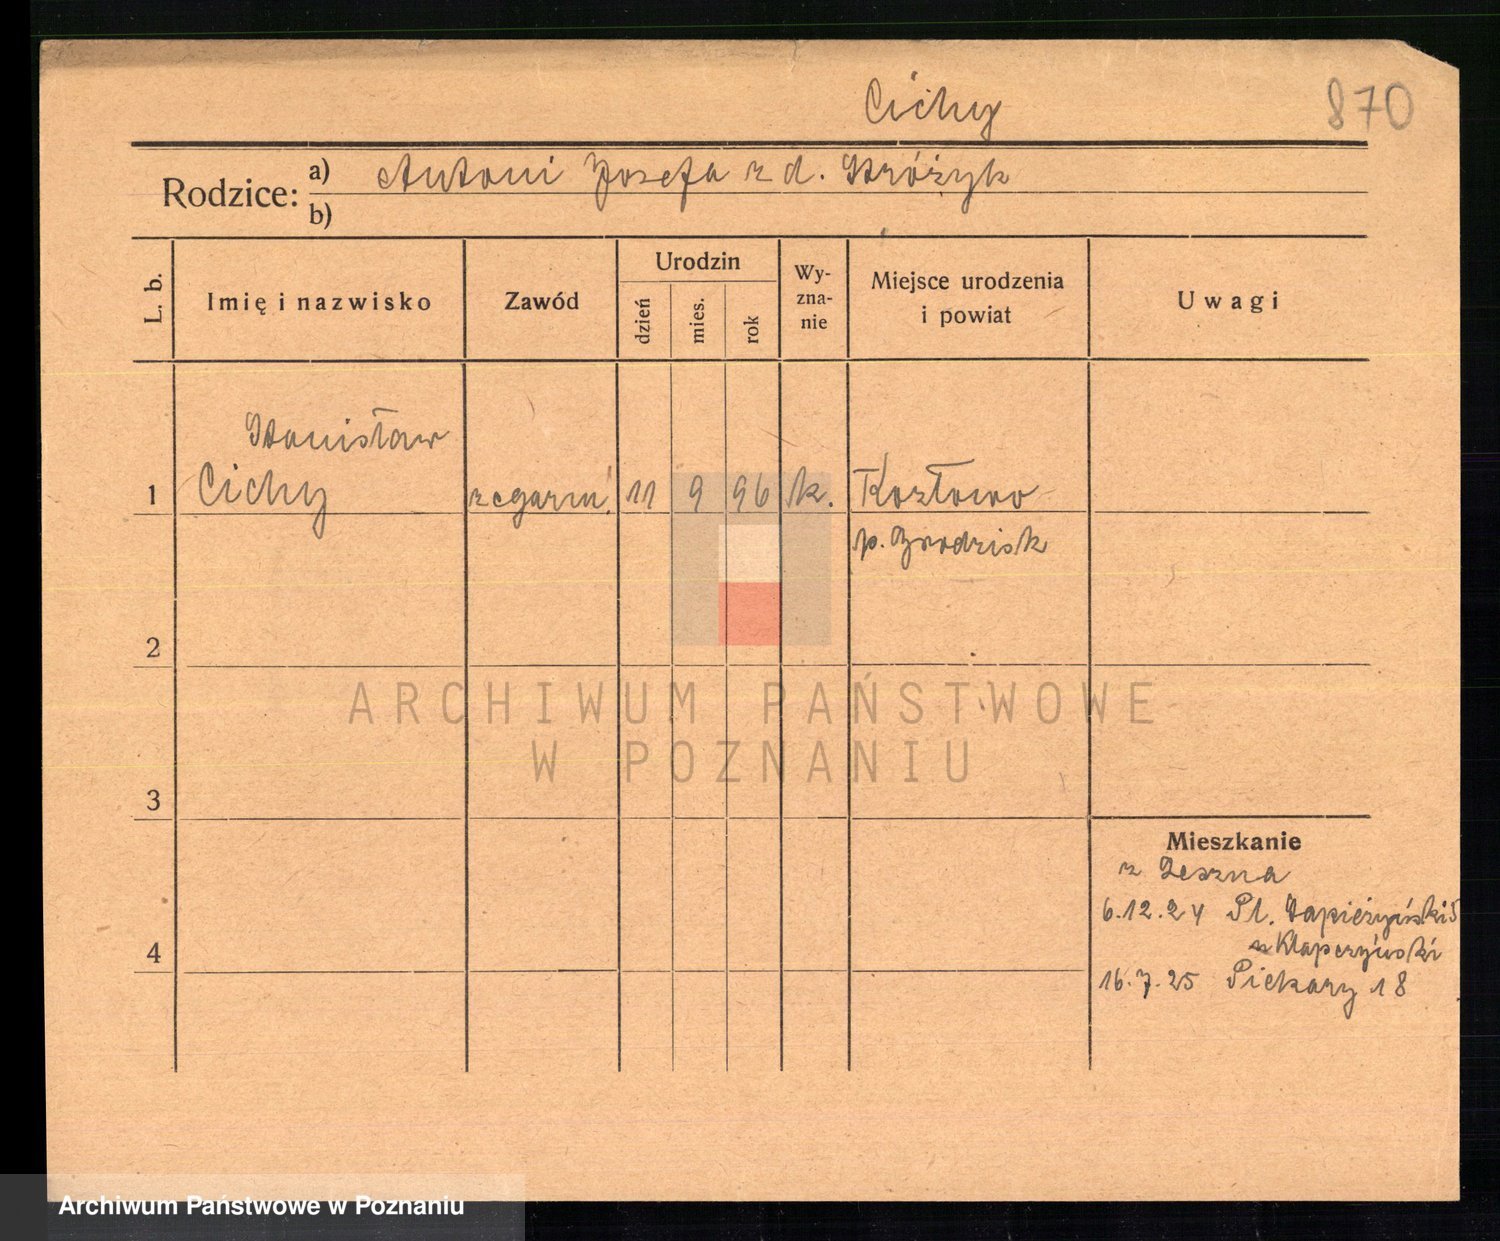 Cichy
870
Rodzice:
a) Antoni Jozefa z d. Stróżyk
b)
L. b.
Imię i nazwisko
Zawód
Urodzin
dzień
mies.
rok
Wy-
zna-
nie
Miejsce urodzenia
i powiat
Uwagi
Stanisław
1 Cichy zegarm. 11 9 96 k. Kozłowo
p. Grodzisk
2
3
4
Mieszkanie
z Leszna
6.12.24 Pl. Sapieżyński 5
16.7.25 Piekary 18
ARCHIWUM PAŃSTWOWE
W POZNANIU
Archiwum Państwowe w Poznaniu